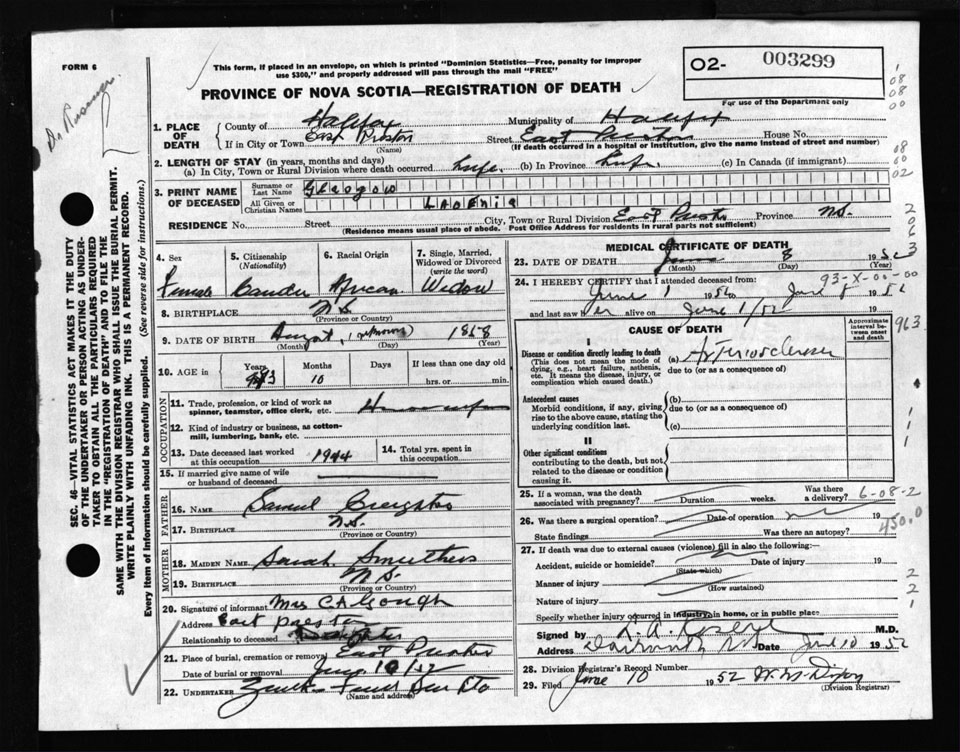 FORM 6
This form, if placed in an envelope, on which is printed "Dominion Statistics—Free, penalty for improper
use $300," and properly addressed will pass through the mail "FREE"
02- 003299
For use of the Department only
PROVINCE OF NOVA SCOTIA—REGISTRATION OF DEATH
1. PLACE OF DEATH
County of Halifax Municipality of Halifax
If in City or Town East Preston Street East Preston House No.
(Name) (If death occurred in a hospital or institution, give the name instead of street and number)
2. LENGTH OF STAY (in years, months and days)
(a) In City, Town or Rural Division where death occurred Life (b) In Province Life (c) In Canada (if immigrant)
3. PRINT NAME OF DECEASED
Surname or Last Name
All Given or Christian Names
RESIDENCE No. Street City, Town or Rural Division East Preston Province N.S.
(Residence means usual place of abode. Post Office Address for residents in rural parts not sufficient)
4. Sex
Female
5. Citizenship (Nationality)
6. Racial Origin
African
7. Single, Married, Widowed or Divorced (write the word)
Widow
8. BIRTHPLACE N.S.
(Province or Country)
9. DATE OF BIRTH August, (unknown) 1858
(Month) (Day) (Year)
10. AGE in Years 93 Months 10 Days If less than one day hrs. or min.
OCCUPATION
11. Trade, profession, or kind of work as spinner, teamster, office clerk, etc. Housewife
12. Kind of industry or business, as cotton-mill, lumbering, bank, etc.
13. Date deceased last worked at this occupation 1944
14. Total yrs. spent in this occupation
15. If married give name of wife or husband of deceased
FATHER
16. NAME Samuel Creighton
17. BIRTHPLACE N.S.
(Province or Country)
MOTHER
18. MAIDEN NAME Sarah Smithers
19. BIRTHPLACE N.S.
(Province or Country)
20. Signature of informant Mrs C A Gough
Address East Preston
Relationship to deceased Daughter
21. Place of burial, cremation or removal East Preston
Date of burial or removal 10/52
22. UNDERTAKER
(Name and address)
MEDICAL CERTIFICATE OF DEATH
23. DATE OF DEATH June 8 1952
(Month) (Day) (Year)
24. I HEREBY CERTIFY that I attended deceased from:
June 1 1952 to June 8 1952
and last saw her alive on June 1/52 19
93-X-00-00
CAUSE OF DEATH
Approximate interval between onset and death
963
I
Disease or condition directly leading to death
(This does not mean the mode of dying, e.g., heart failure, asthenia, etc. It means the disease, injury, or complication which caused death.)
(a) Arteriosclerosis
due to (or as a consequence of)
Antecedent causes
Morbid conditions, if any, giving rise to the above cause, stating the underlying condition last.
(b)
due to (or as a consequence of)
(c)
II
Other significant conditions
contributing to the death, but not related to the disease or condition causing it.
25. If a woman, was the death associated with pregnancy? Duration weeks. Was there a delivery?
6-08-2
26. Was there a surgical operation? Date of operation 19
450.0
State findings Was there an autopsy?
27. If death was due to external causes (violence) fill in also the following:—
Accident, suicide or homicide? Date of injury 19
(State which)
Manner of injury
(How sustained)
Nature of injury
Specify whether injury occurred in industry, in home, or in public place
Signed by M.D.
Address Dartmouth N.S. Date June 10 1952
28. Division Registrar's Record Number
29. Filed June 10 1952
(Division Registrar)
SEC. 46—VITAL STATISTICS ACT MAKES IT THE DUTY
OF THE UNDERTAKER OR PERSON ACTING AS UNDERTAKER TO OBTAIN ALL THE PARTICULARS REQUIRED
IN THE "REGISTRATION OF DEATH" AND TO FILE THE
SAME WITH THE DIVISION REGISTRAR WHO SHALL ISSUE THE BURIAL PERMIT.
WRITE PLAINLY WITH UNFADING INK. THIS IS A PERMANENT RECORD.
Every item of information should be carefully supplied. (See reverse side for instructions.)